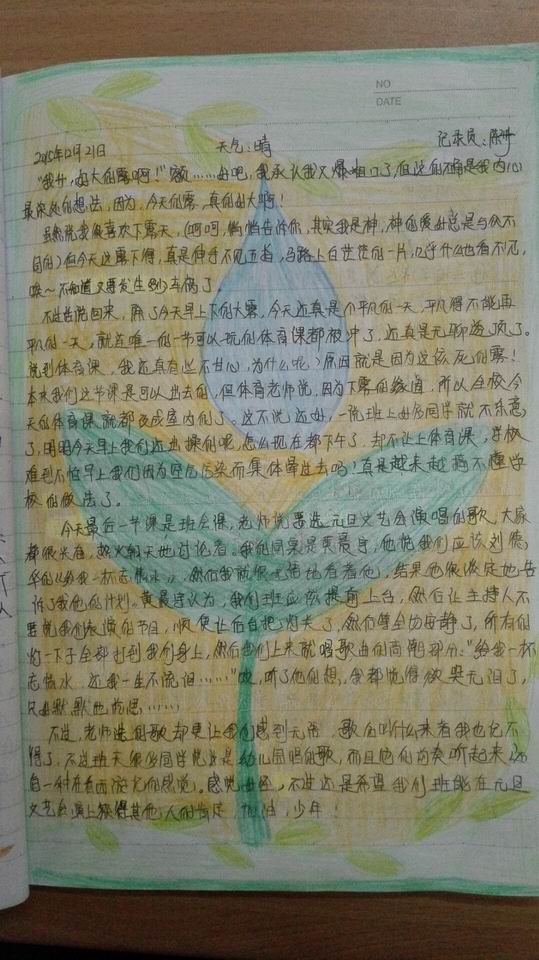 NO
DATE
2015年12月21日 天气:晴 记录员:陈
"我 ,好大的雾啊!"额……好吧,我承认我又爆粗口了,但这的确是我内心
最深处的想法,因为,今天的雾,真的好大啊!
虽然说我很喜欢下雾天,(呵呵,悄悄告诉你,其实我是神,神的爱好总是与众不
同的)但今天这雾下得,真是伸手不见五指,马路上白茫茫的一片,几乎什么也看不见,
唉~不知道又要发生多少车祸了
不过话说回来,除了今天早上下的大雾,今天还真是个平凡的一天,平凡得不能再
平凡的一天,就连唯一的一节可以玩的体育课都被冲了,还真是无聊透顶了。
说到体育课,我还真有些不甘心,为什么呢?原因就是因为这该死的雾!
本来我们这节课是可以出去的,但体育老师说,因为下雾的缘故,所以全校今
天的体育课就都改成室内的了。这不说还好,一说班上好多同学就不乐意
了,明明今天早上我们还出操的呢,怎么现在都下午了,却不让上体育课,学校
难到不怕早上我们因为空气污染而集体晕过去吗!真是越来越搞不懂学
校的做法了。
今天最后一节课是班会课,老师说要选元旦文艺会演唱的歌,大家
都很兴奋,热火朝天地讨论着。我的同桌是黄晨宇,他说我们应该刘德
华的《给我一杯忘情水》,然后我就很无语地看着他,结果他很淡定地告
诉了我他的计划。黄晨宇认为,我们班应该提前上台,然后让主持人不
要说我们表演的节目,顺便让后台把灯关了,然后等全场安静了,所有的
灯一下子全部打到我们身上,然后我们上来就唱歌曲的高潮部分:"给我一杯
忘情水,还我一生不流泪……"哎,听了他的想,我都觉得欲哭无泪了,
只得默默地 ……
不过,老师选的歌却更让我们感到无语,歌名叫什么来着我也记不
得了,不过班天很多同学说这是幼儿园唱的歌,而且他的前奏听起来还
自一种在看西游记的感觉。感觉 ,不过还是希望我们班能在元旦
文艺会演上获得其他人的肯定,加油,少年!